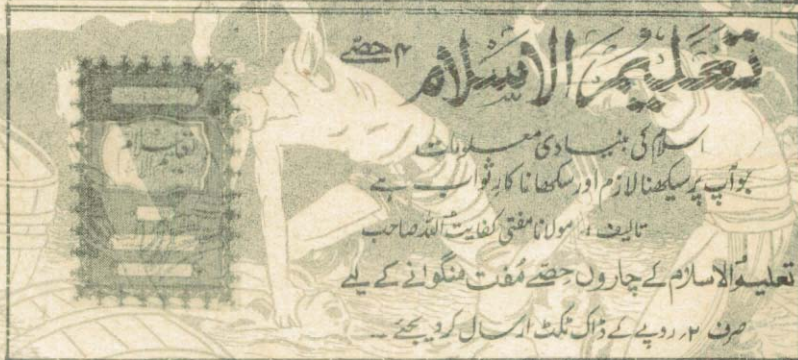 تعلیم الاسلام ۴ حصّے
اسلام کی بنیادی معلومات
جو آپ پر سیکھنا لازم اور سکھانا کارِ ثواب ہے
تالیف : مولانا مفتی کفایت اللہ صاحب
تعلیم الاسلام کے چاروں حصّے مُفت منگوانے کے لیے
صرف ۲ روپے کے ڈاک ٹکٹ ارسال کر دیجئے ۔۔
تعلیم الاسلام